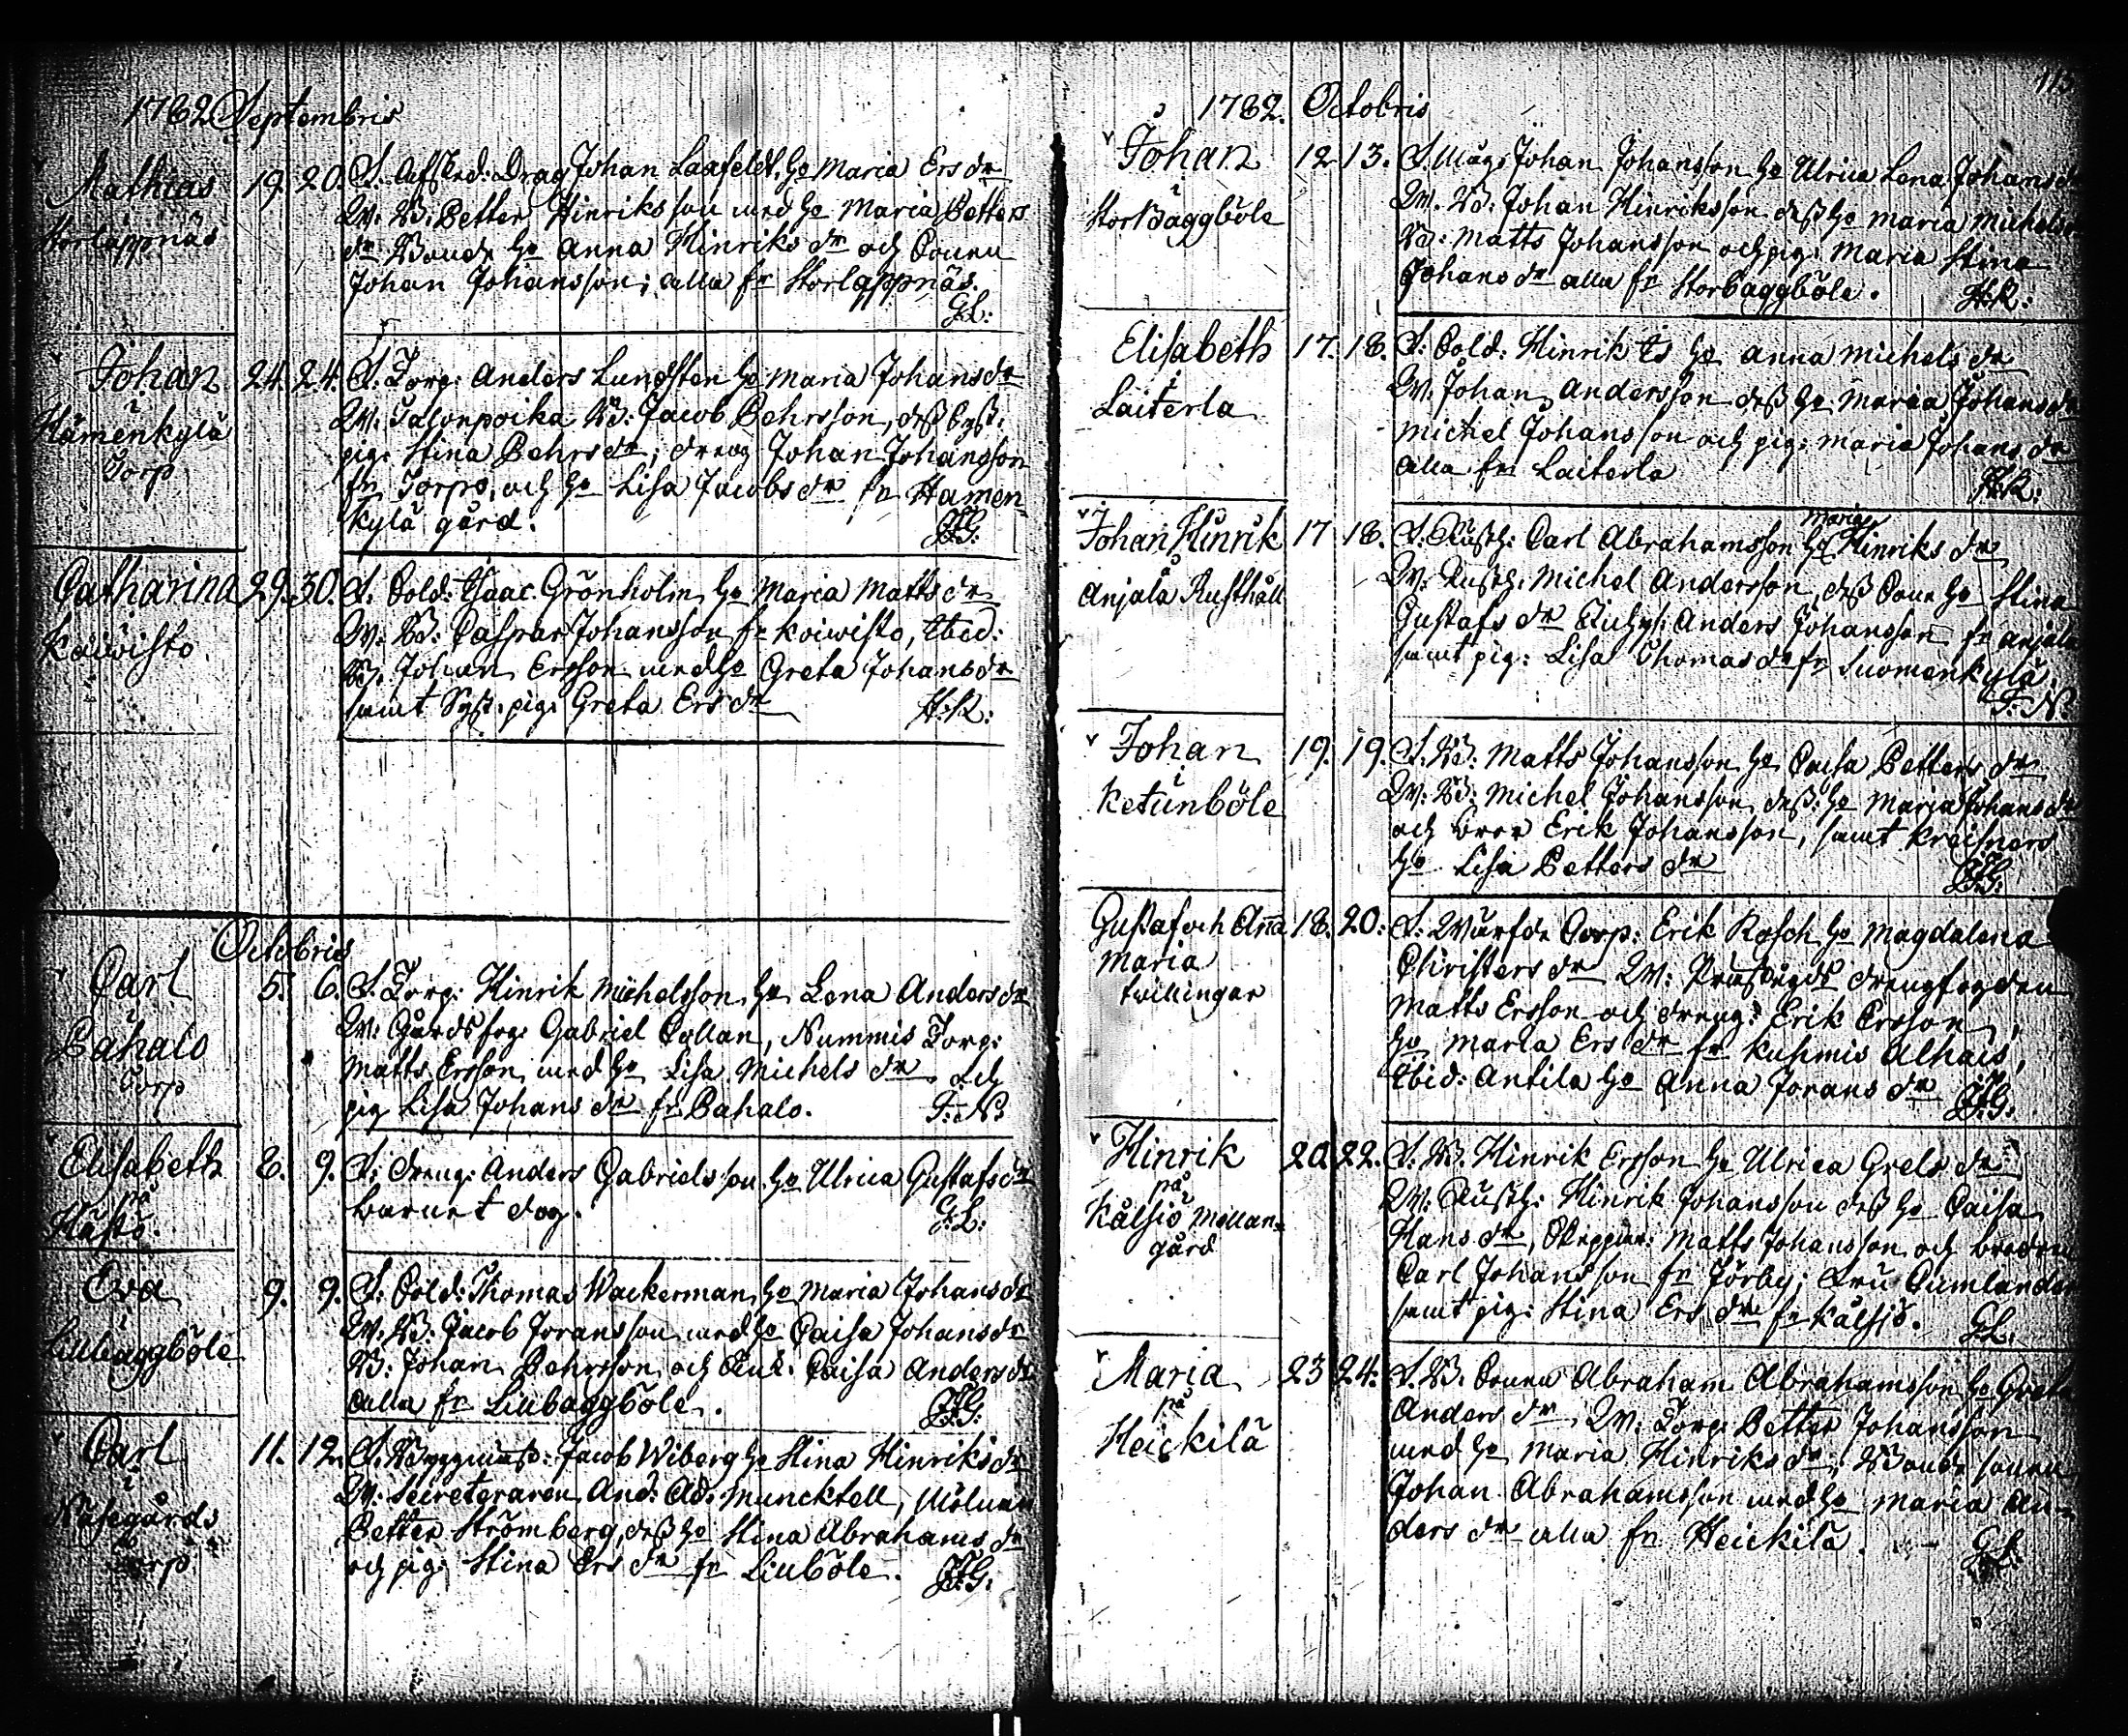 1782 Septembris
Mathias
Storlappnäs
19. 20. F. Afsked: Drag Johan Laafeldt, Ho Maria Ers dr
W: B. Petter Hinriksson med Ho Maria Petters
dr Bonde Ho Anna Hinriks dr och Sonen
Johan Johansson; alla fr Storlappnäs.
G:L:
Johan
i
Hämenkylä
Torp
24. 24. F. Torp: Anders Lundsten Ho Maria Johans dr
W: Talonpoika B: Jacob Pehrsson, dess
pig: Stina Pehrs dr, dreng Johan Johansson
fr Torps, och Ho Lisa Jacobs dr fr Hämen-
kylä gård.
Catharina
i
Koiwisto
29. 30. F. Sold: Isaac Grönholm Ho Maria Matts dr
W: B: Caspar Johansson fr Koiwisto, Ibid:
B. Johan Ersson med Ho Greta Johans dr
samt pig: Greta Ers dr
H:R:
Octobris
Carl
i
Pahalo
Torp
5. 6. F. Torp: Hinrik Michelsson Ho Lena Anders dr
W: Gårdsfog: Gabriel Collan, Nummis Torp:
Matts Ersson med Ho Lisa Michels dr och
pig Lisa Johans dr fr Pahalo.
F:N:
Elisabeth
på
Hästö.
8. 9. F: dreng: Anders Gabrielsson Ho Ulrica Gustafs dr
barnet dog.
G:L:
Eva
i
Lillbaggböle
9. 9. F: Sold: Thomas Wackerman Ho Maria Johans dr
W: B: Jacob Joransson med Ho Caisa Johans dr
B: Johan Pehrsson och Enk: Caisa Anders dr
alla fr Lillbaggböle.
Carl
i
Näsegårds
Torp
11. 12. F. Byggmäst: Jacob Wiberg Ho Stina Hinriks dr
W: Secreteraren And: Ad: Muncktell, Mölnare
Petter Strömberg, dess Ho Stina Abrahams dr
och pig: Stina Ers dr fr Lillböle.
115
1782. Octobris
Johan
i
StorBaggböle
12 13. F. Måg: Johan Johansson Ho Ulrica Lena Johans dr
W. B: Johan Hinriksson dess Ho Maria Michels dr
B: Matts Johansson och pig: Maria Stina
Johans dr alla fr Storbaggböle.
H:R:
Elisabeth
i
Laiterla
17. 18. F: Sold: Hinrik Es Ho Anna Michels dr
W. Johan Andersson dess Ho Maria Johans dr
Michel Johansson och pig: Maria Johans dr
alla fr Laiterla
H:R:
Johan Hinrik
Anjala Rusthåll
17 18. F. Rusth: Carl Abrahamsson Ho Maria Hinriks dr
W: Rusth: Michel Andersson, dess Sone Ho Stina
Gustafs dr Anders Johansson fr Anjala
samt pig: Lisa Thomas dr fr Suomenkylä.
F:N:
Johan
i
Ketunböle
19. 19. F. B: Matts Johansson Ho Caisa Petters dr
W: B: Michel Johansson, dess Ho Maria Johans dr
och bror Erik Johansson, samt Kreisners
Ho Lisa Petters dr
Gustaf och Anna
Maria
tvillingar
18. 20: F: Wärfde Corp: Erik Rosch Ho Magdalena
Christers dr W: drengfogden
Matts Ersson och dreng: Erik Ersson,
Ho Maria Ers dr fr Alhais,
Ibid: Antila Ho Anna Jorans dr
Hinrik
på
Kälsiö Mellan-
gård
20. 22. F: B. Hinrik Ersson Ho Ulrica Grels dr
W: Rusth: Hinrik Johansson dess Ho Caisa
Hans dr, Skeppar: Matts Johansson och brodren
Carl Johansson fr Jörby; Fru Cumlander
samt pig: Stina Ers dr fr Kälsiö.
G:L:
Maria
på
Heickilä
23 24. F. B. Sonen Abraham Abrahamsson Ho Greta
Anders dr, W: Torp: Petter Johansson
med Ho Maria Hinriks dr, Bonde sonen
Johan Abrahamsson med Ho Maria An-
ders dr alla fr Heickilä.
G:L: